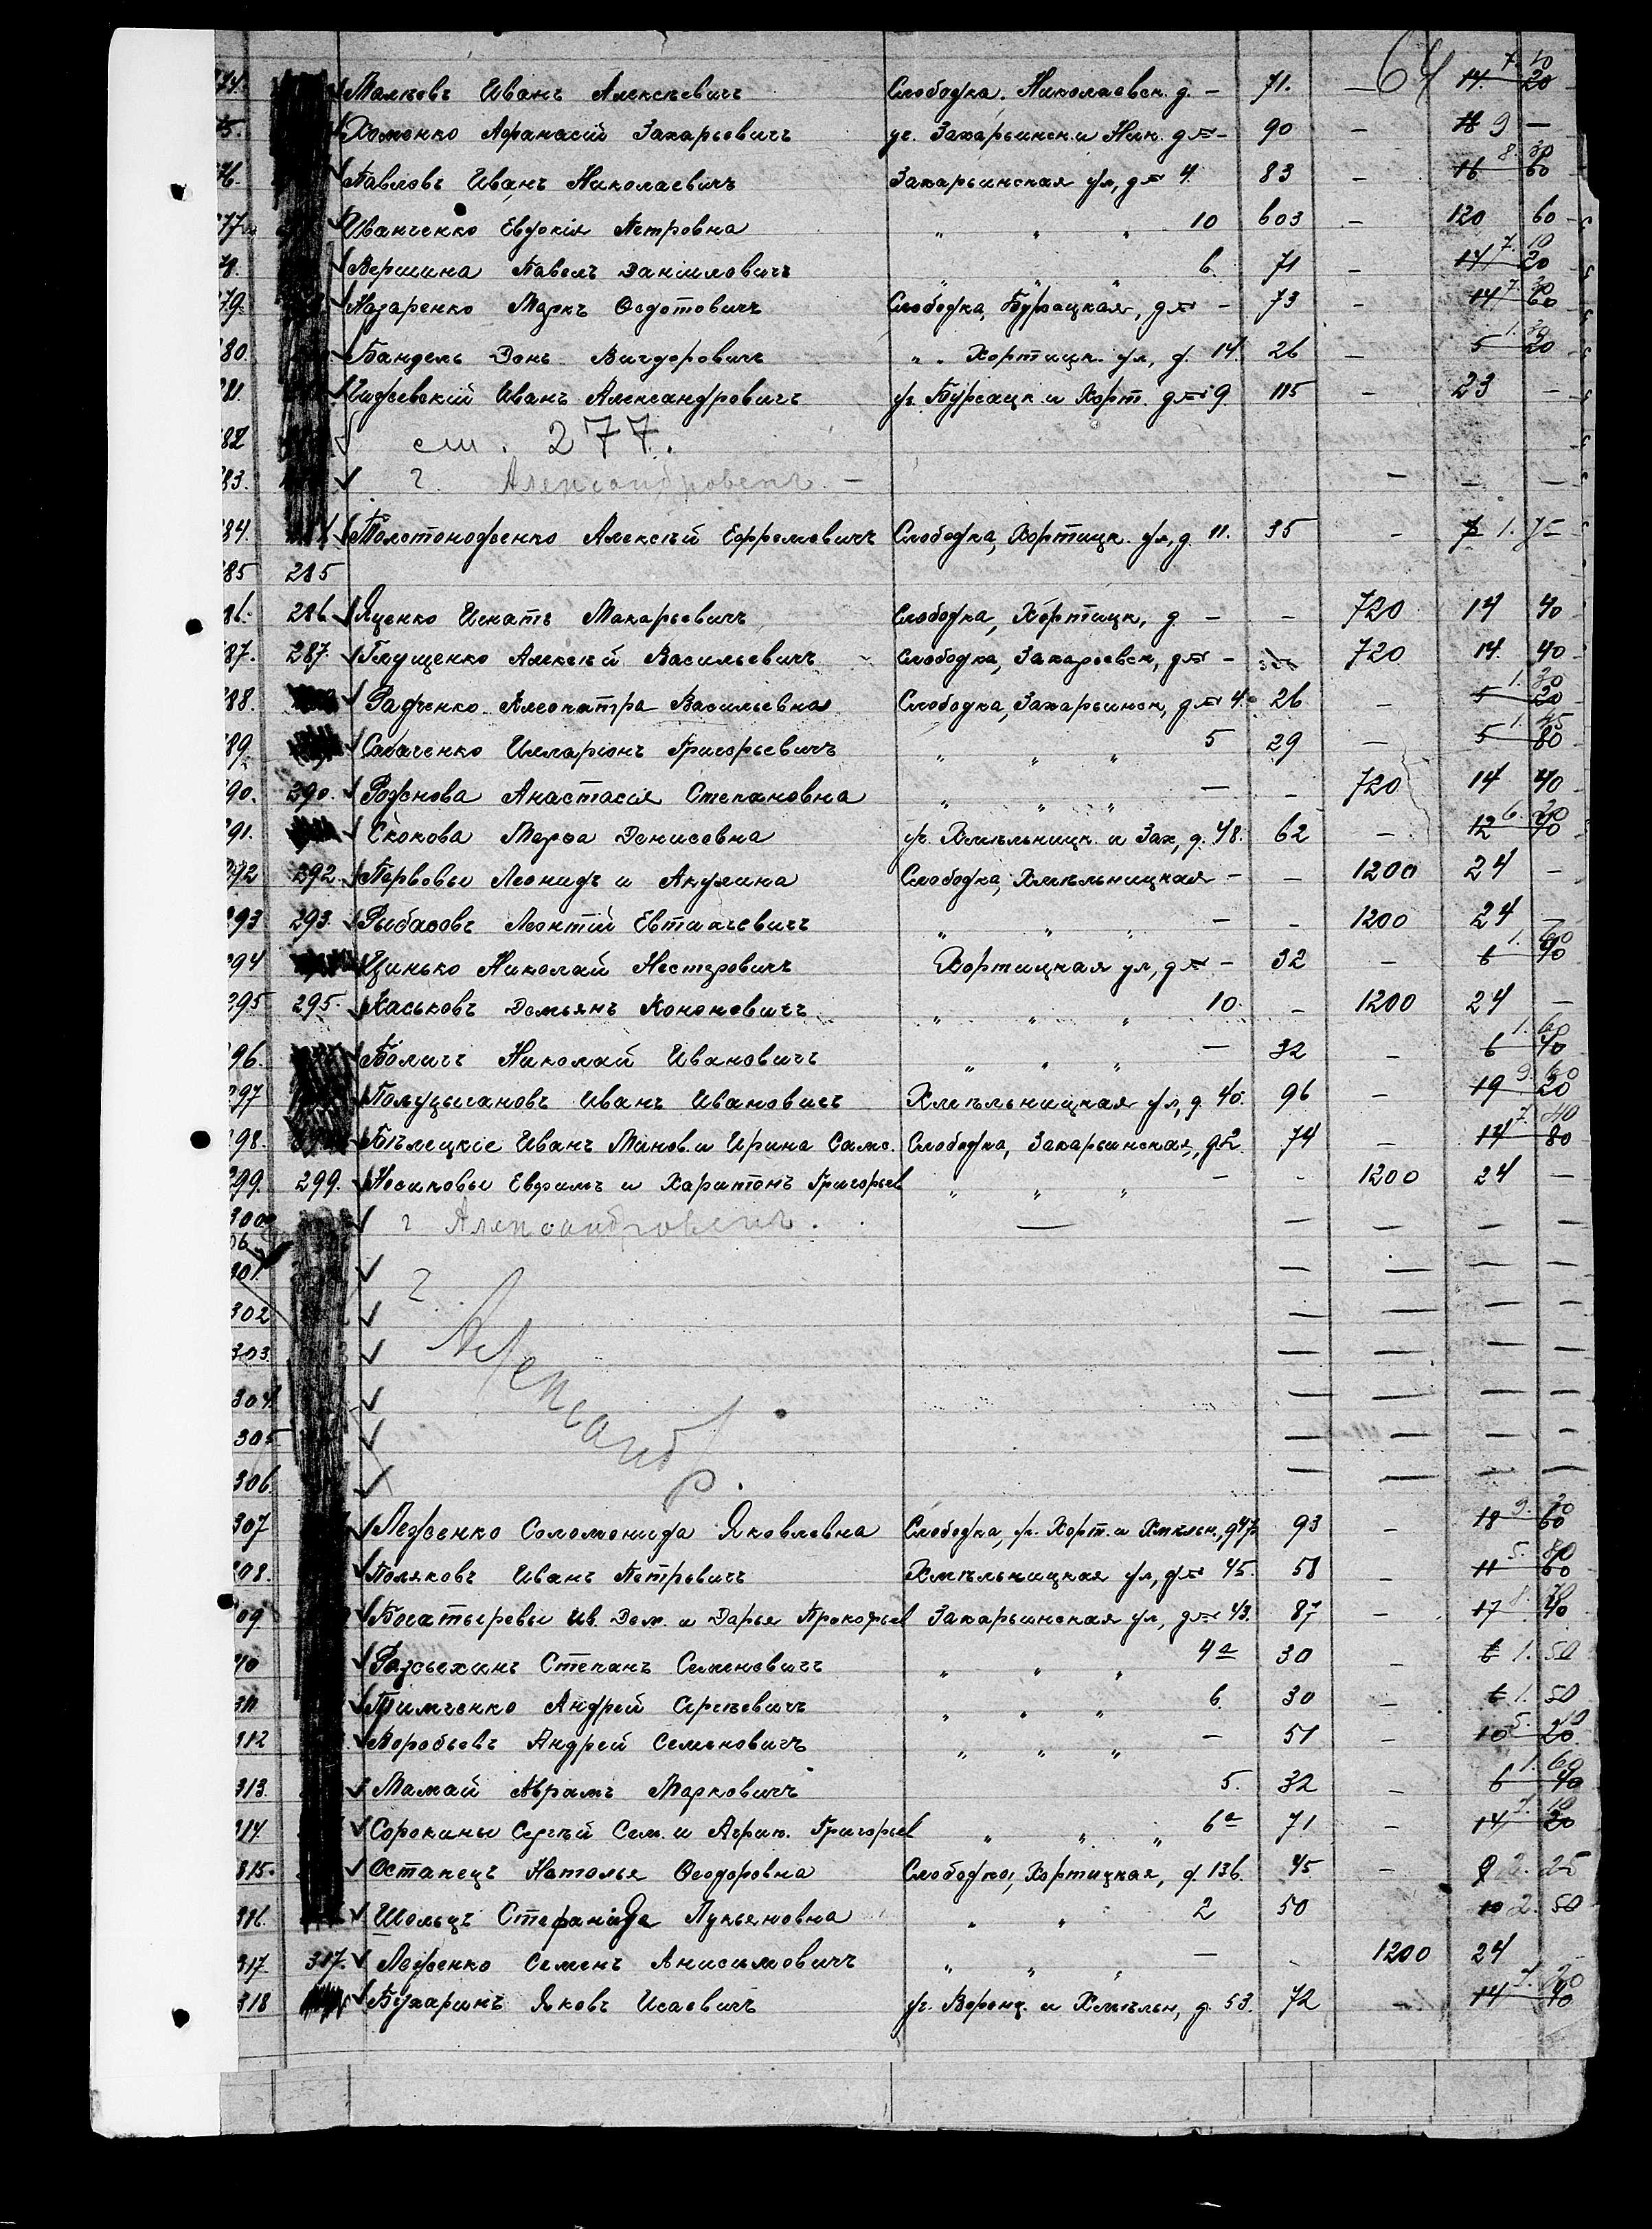 64
74. Малѣевъ Иванъ Алексѣевичъ Слободка. Николаевск. д. - 71. - 14. 20 7. 10
75. Хоменко Афанасій Захарьевичъ уг. Захарьинск. и Ник. д. - 90 - 18 9 -
76. Павловъ Иванъ Николаевичъ Захарьинская ул, д 4. 83 - 16 60 8. 30
77. Иванченко Евдокія Петровна " " " 10 603 - 120 60
78. Вершина Павелъ Даниловичъ " " " 6. 71 - 14 20 7. 10
79. Назаренко Маркъ Ѳедотовичъ Слободка, Бурсацкая, д - 73 - 14 60 7. 30
80. Бандель Донъ " Хортицк. ул, д. 14. 26 - 5 20 1. 30
81. Иванъ Александровичъ уг. Бурсацк. и Хорт. д 9. 115 - 23 -
82 см. 277.
83. г. Александровскъ - - - -
84. Толстоноженко Алексѣй Ефремовичъ Слободка, Хортицк. ул, д. 11. 35 - 7 1. 75
85 285
86. 286 Яценко Игнатъ Макарьевичъ Слободка, Хортицк, д. - - 720 14 40
87. 287. Глущенко Алексѣй Васильевичъ Слободка, Захарьевск, д - 720 14. 40
88. Радченко Клеопатра Васильевна Слободка, Захарьинск, д 4. 26 - 5 20 1. 30
89. Сабаченко Илларіонъ Григорьевичъ " " " 5 29 - 5 80 1. 45
90. 290. Рожнова Анастасія Степановна " " " - - 720 14 40
91. Скокова Марѳа Денисовна уг. Хмѣльницк. и Зах, д. 48. 62 - 12 40 6. 20
292 292. Первовы Леонидъ и Акулина Слободка, Хмѣльницкая - - 1200 24 -
293 293. Рыбасовъ Леонтій Евтихіевичъ " " " - - 1200 24 -
294 Николай Нестеровичъ Хортицкая ул, д - 32 - 6 40 1. 60
295 295. Каськовъ Демьянъ Кононовичъ " " " 10. - 1200 24 -
96. Николай Ивановичъ " " " - 32 - 6 40 1. 60
297 Полуцыгановъ Иванъ Ивановичъ Хмѣльницкая ул, д. 40. 96 - 19 20 9. 60
98. Бѣлецкіе Иванъ Минов. и Ирина Сам. Слободка, Захарьинская, д 2. 74 - 14 80 7. 40
299. 299. Носиковы Евфимъ и Харитонъ Григорьев " " " - - 1200 24 -
300 г Александровскъ. - - - - -
301. г. Александр. - - - -
302 - - - -
303. - - - -
304. - - - -
305 - - - -
306. - - - -
307 Леженко Соломонида Яковлевна Слободка, уг. Хорт. и Хмѣльн, д 47. 93 - 18 60 9. 30
308. Поляковъ Иванъ Петровичъ Хмѣльницкая ул, д 45. 58 - 11 60 5. 80
309. Богатыревы Ив. Дем. и Дарья Прокофьев Захарьинская ул, д 43. 87 - 17 40 8. 70
310 Степанъ Семеновичъ " " " 4а 30 - 6 1. 50
311 Тимченко Андрей Сергѣевичъ " " " 6 30 - 6 1. 50
312 Воробьевъ Андрей Семеновичъ " " " - 51 - 10 20 5. 10
313. Мамай Абрамъ Марковичъ 5. 32 - 6 40 1. 60
314. Сорокины Сергѣй Сем. и Агрип. Григорьев " " " 6а 71 - 14 20 7. 10
315. Остапецъ Наталья Ѳеодоровна Слободка, Хортицкая, д. 136. 45. - 9 2. 25
316. Шольцъ Стефанида Лукьяновна " " 2 50 10 2. 50
317 317. Леженко Семенъ Анисимовичъ " " " - - 1200 24
318 Бухаринъ Яковъ Исаевичъ уг. Воронц. и Хмѣльн, д. 53. 72 - 14 40 7. 20